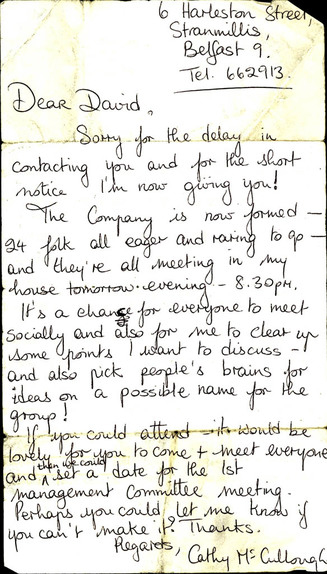 6 Harleston Street,
Stranmillis,
Belfast 9.
Tel. 662913.
Dear David,
Sorry for the delay in
contacting you and for the short
notice I'm now giving you!
The Company is now formed —
24 folk all eager and raring to go —
and they're all meeting in my
house tomorrow evening - 8.30pm.
It's a chance for everyone to meet
socially and also for me to clear up
some points I want to discuss —
and also pick people's brains for
ideas on a possible name for the
group!
If you could attend — it would be
lovely for you to come + meet everyone
and then we could set a date for the 1st
management Committee meeting.
Perhaps you could let me know if
you can't make it? Thanks.
Regards, Cathy McCullough